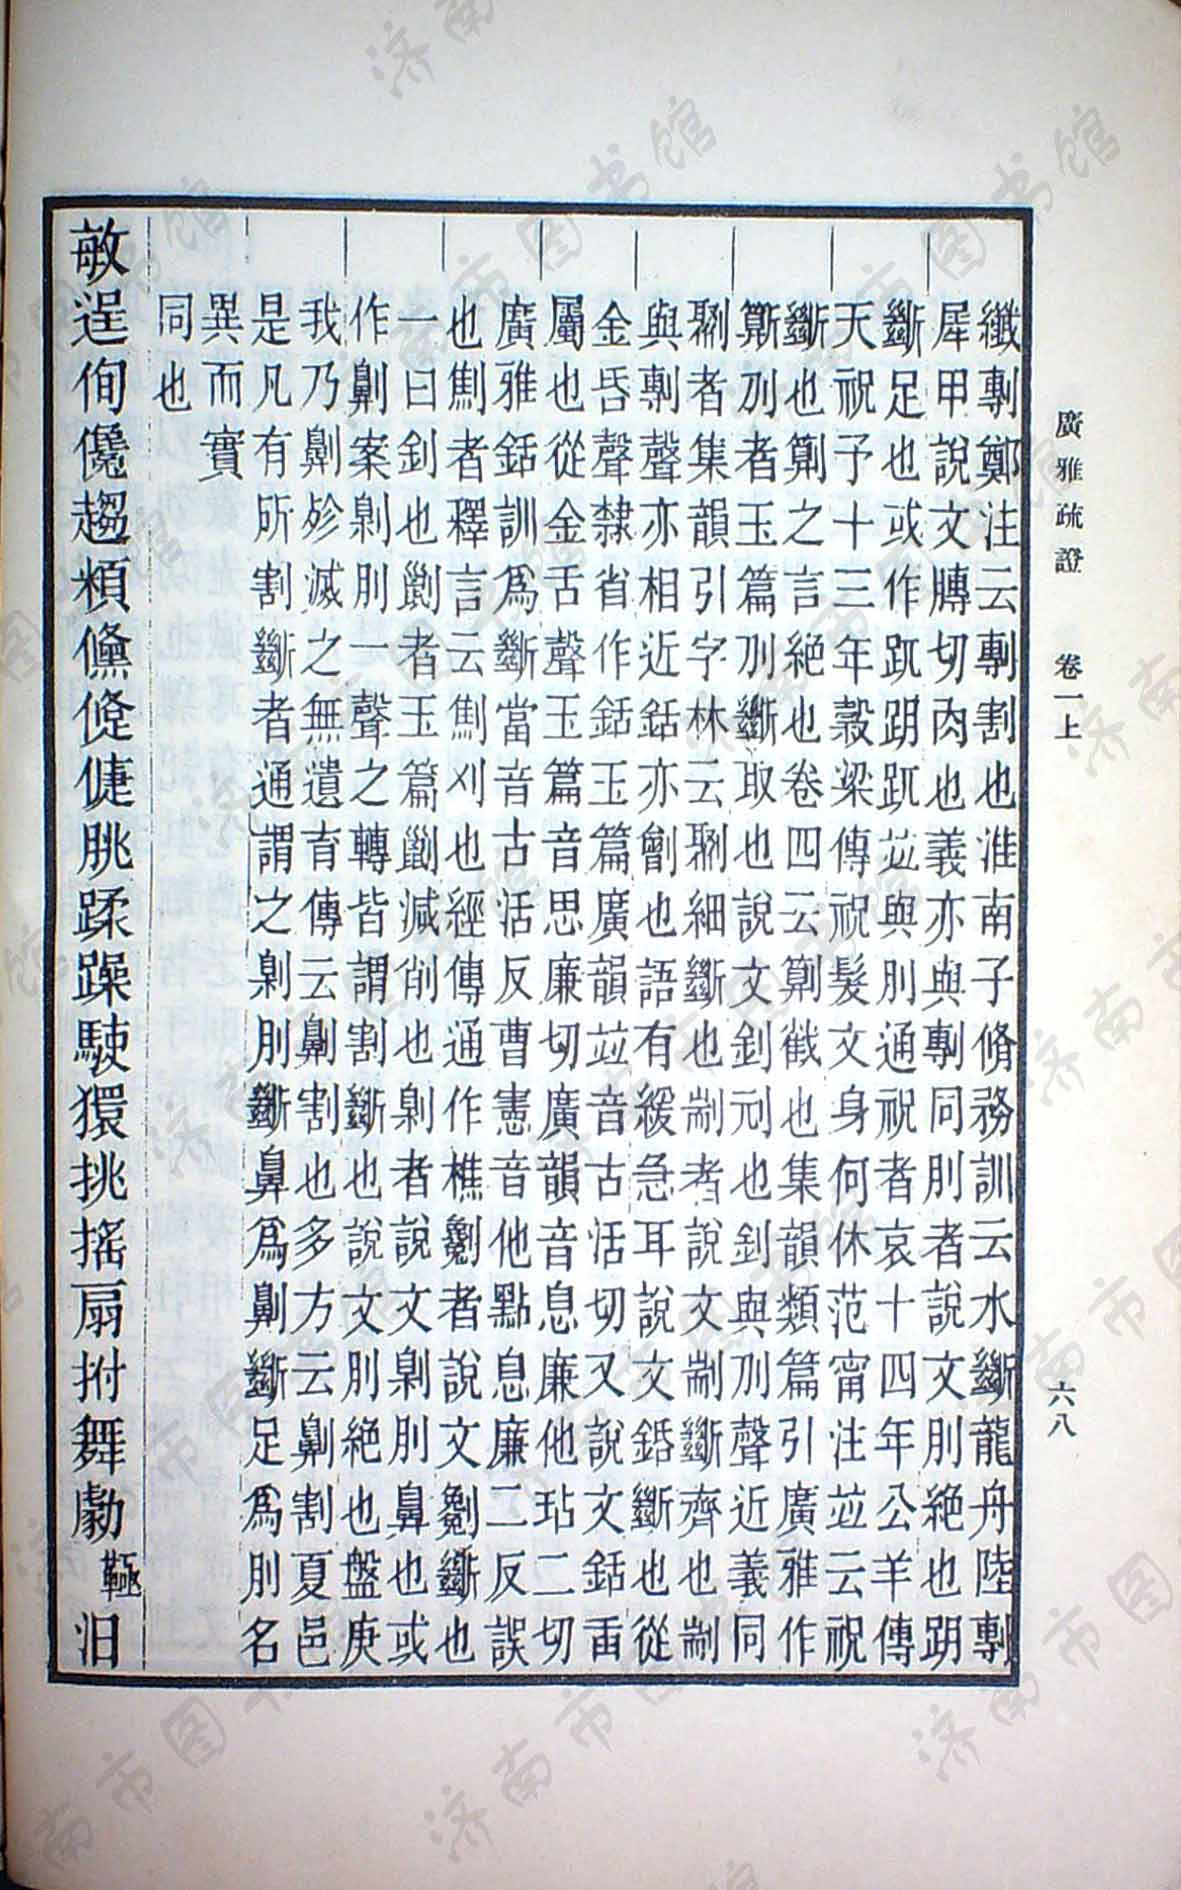 廣雅疏證　卷一上　六八
纖剸鄭注云剸割也淮南子脩務訓云水斷龍舟陸剸
犀甲說文膞切肉也義亦與剸同刖者說文刖絕也跀
斷足也或作䟢跀䟢並與刖通祝者哀十四年公羊傳
天祝予十三年穀梁傳祝髮文身何休范甯注並云祝
斷也之言絕也卷四云截也集韻類篇引廣雅作
者玉篇斷取也說文釗刓也釗與聲近義同
者集韻引字林云細斷也剬者說文剬斷齊也剬
與剸聲亦相近銛亦劊也語有緩急耳說文銽斷也從
金昏聲隸省作銛玉篇廣韻並音古活切又說文銛臿
屬也從金舌聲玉篇音思廉切廣韻音息廉他玷二切
廣雅銛訓爲斷當音古活反曹憲音他點息廉二反誤
也劁者釋言云劁刈也經傳通作樵劖者說文劖斷也
一曰釗也者玉篇減削也㓷者說文㓷刖鼻也或
作劓案㓷刖一聲之轉皆謂割斷也說文刖絕也盤庚
我乃劓殄滅之無遺育傳云劓割也多方云劓割夏邑
是凡有所割斷者通謂之㓷刖斷鼻爲劓斷足爲刖名
異而實
同也
敏逞侚儳趨儵倐倢朓蹂躁駛獧挑搖扇拊舞勮汩